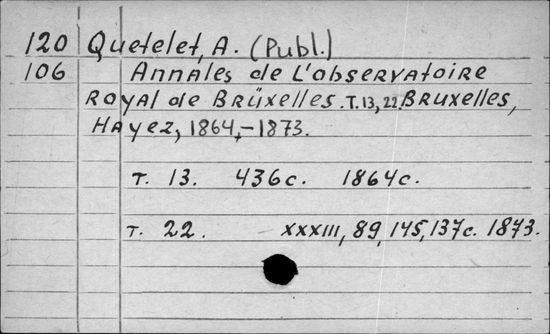 120 Quetelet, A. (Publ.)
106 Annales de L'observatoire
Royal de Brüxelles. T. 13, 22. Bruxelles,
Hayez, 1864,-1873.
T. 13. 436c. 1864c.
T. 22. XXXIII, 89, 145, 137c. 1873.